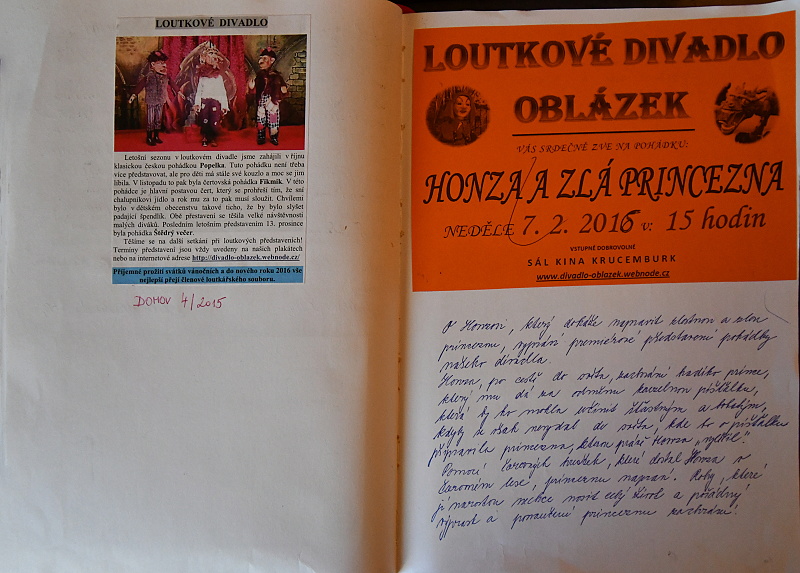 LOUTKOVÉ DIVADLO
Letošní sezonu v loutkovém divadle jsme zahájili v říjnu
klasickou českou pohádkou Popelka. Tuto pohádku není třeba
více představovat, ale pro děti má stále své kouzlo a moc se jim
líbila. V listopadu to pak byla čertovská pohádka Fikmik. V této
pohádce je hlavní postavou čert, který se prohřeší tím, že sní
chalupníkovi jídlo a rok mu za to pak musí sloužit. Chvílemi
bylo v dětském obecenstvu takové ticho, že by bylo slyšet
padající špendlík. Obě přestavení se těšila velké návštěvnosti
malých diváků. Posledním letošním představením 13. prosince
byla pohádka Štědrý večer.
Těšíme se na další setkání při loutkových představeních!
Termíny představení jsou vždy uvedeny na našich plakátech
nebo na internetové adrese http://divadlo-oblazek.webnode.cz/
Příjemné prožití svátků vánočních a do nového roku 2016 vše
nejlepší přejí členové loutkářského souboru.
DOMOV 4/2015
LOUTKOVÉ DIVADLO
OBLÁZEK
VÁS SRDEČNĚ ZVE NA POHÁDKU:
HONZA A ZLÁ PRINCEZNA
NEDĚLE 7. 2. 2016 v: 15 hodin
VSTUPNÉ DOBROVOLNÉ
SÁL KINA KRUCEMBURK
www.divadlo-oblazek.webnode.cz
O Honzovi, který dokáže napravit zlostnou a zlou
princeznu, vypráví premiérové představení pohádky
našeho divadla.
Honza, po cestě do světa, zachrání hadího prince,
který mu dá za odměnu kouzelnou píšťalku,
která by ho mohla učinit šťastným a bohatým,
kdyby se však nevydal do světa, kde ho o píšťalku
připravila princezna, kterou právě Honza "vyléčil".
Pomocí čarovných hrušek, které dostal Honza v
čarovném lese, princeznu napraví. Rohy, které
jí narostou nechce nosit celý život a pořádný
výprask a ponaučení princeznu zachrání!